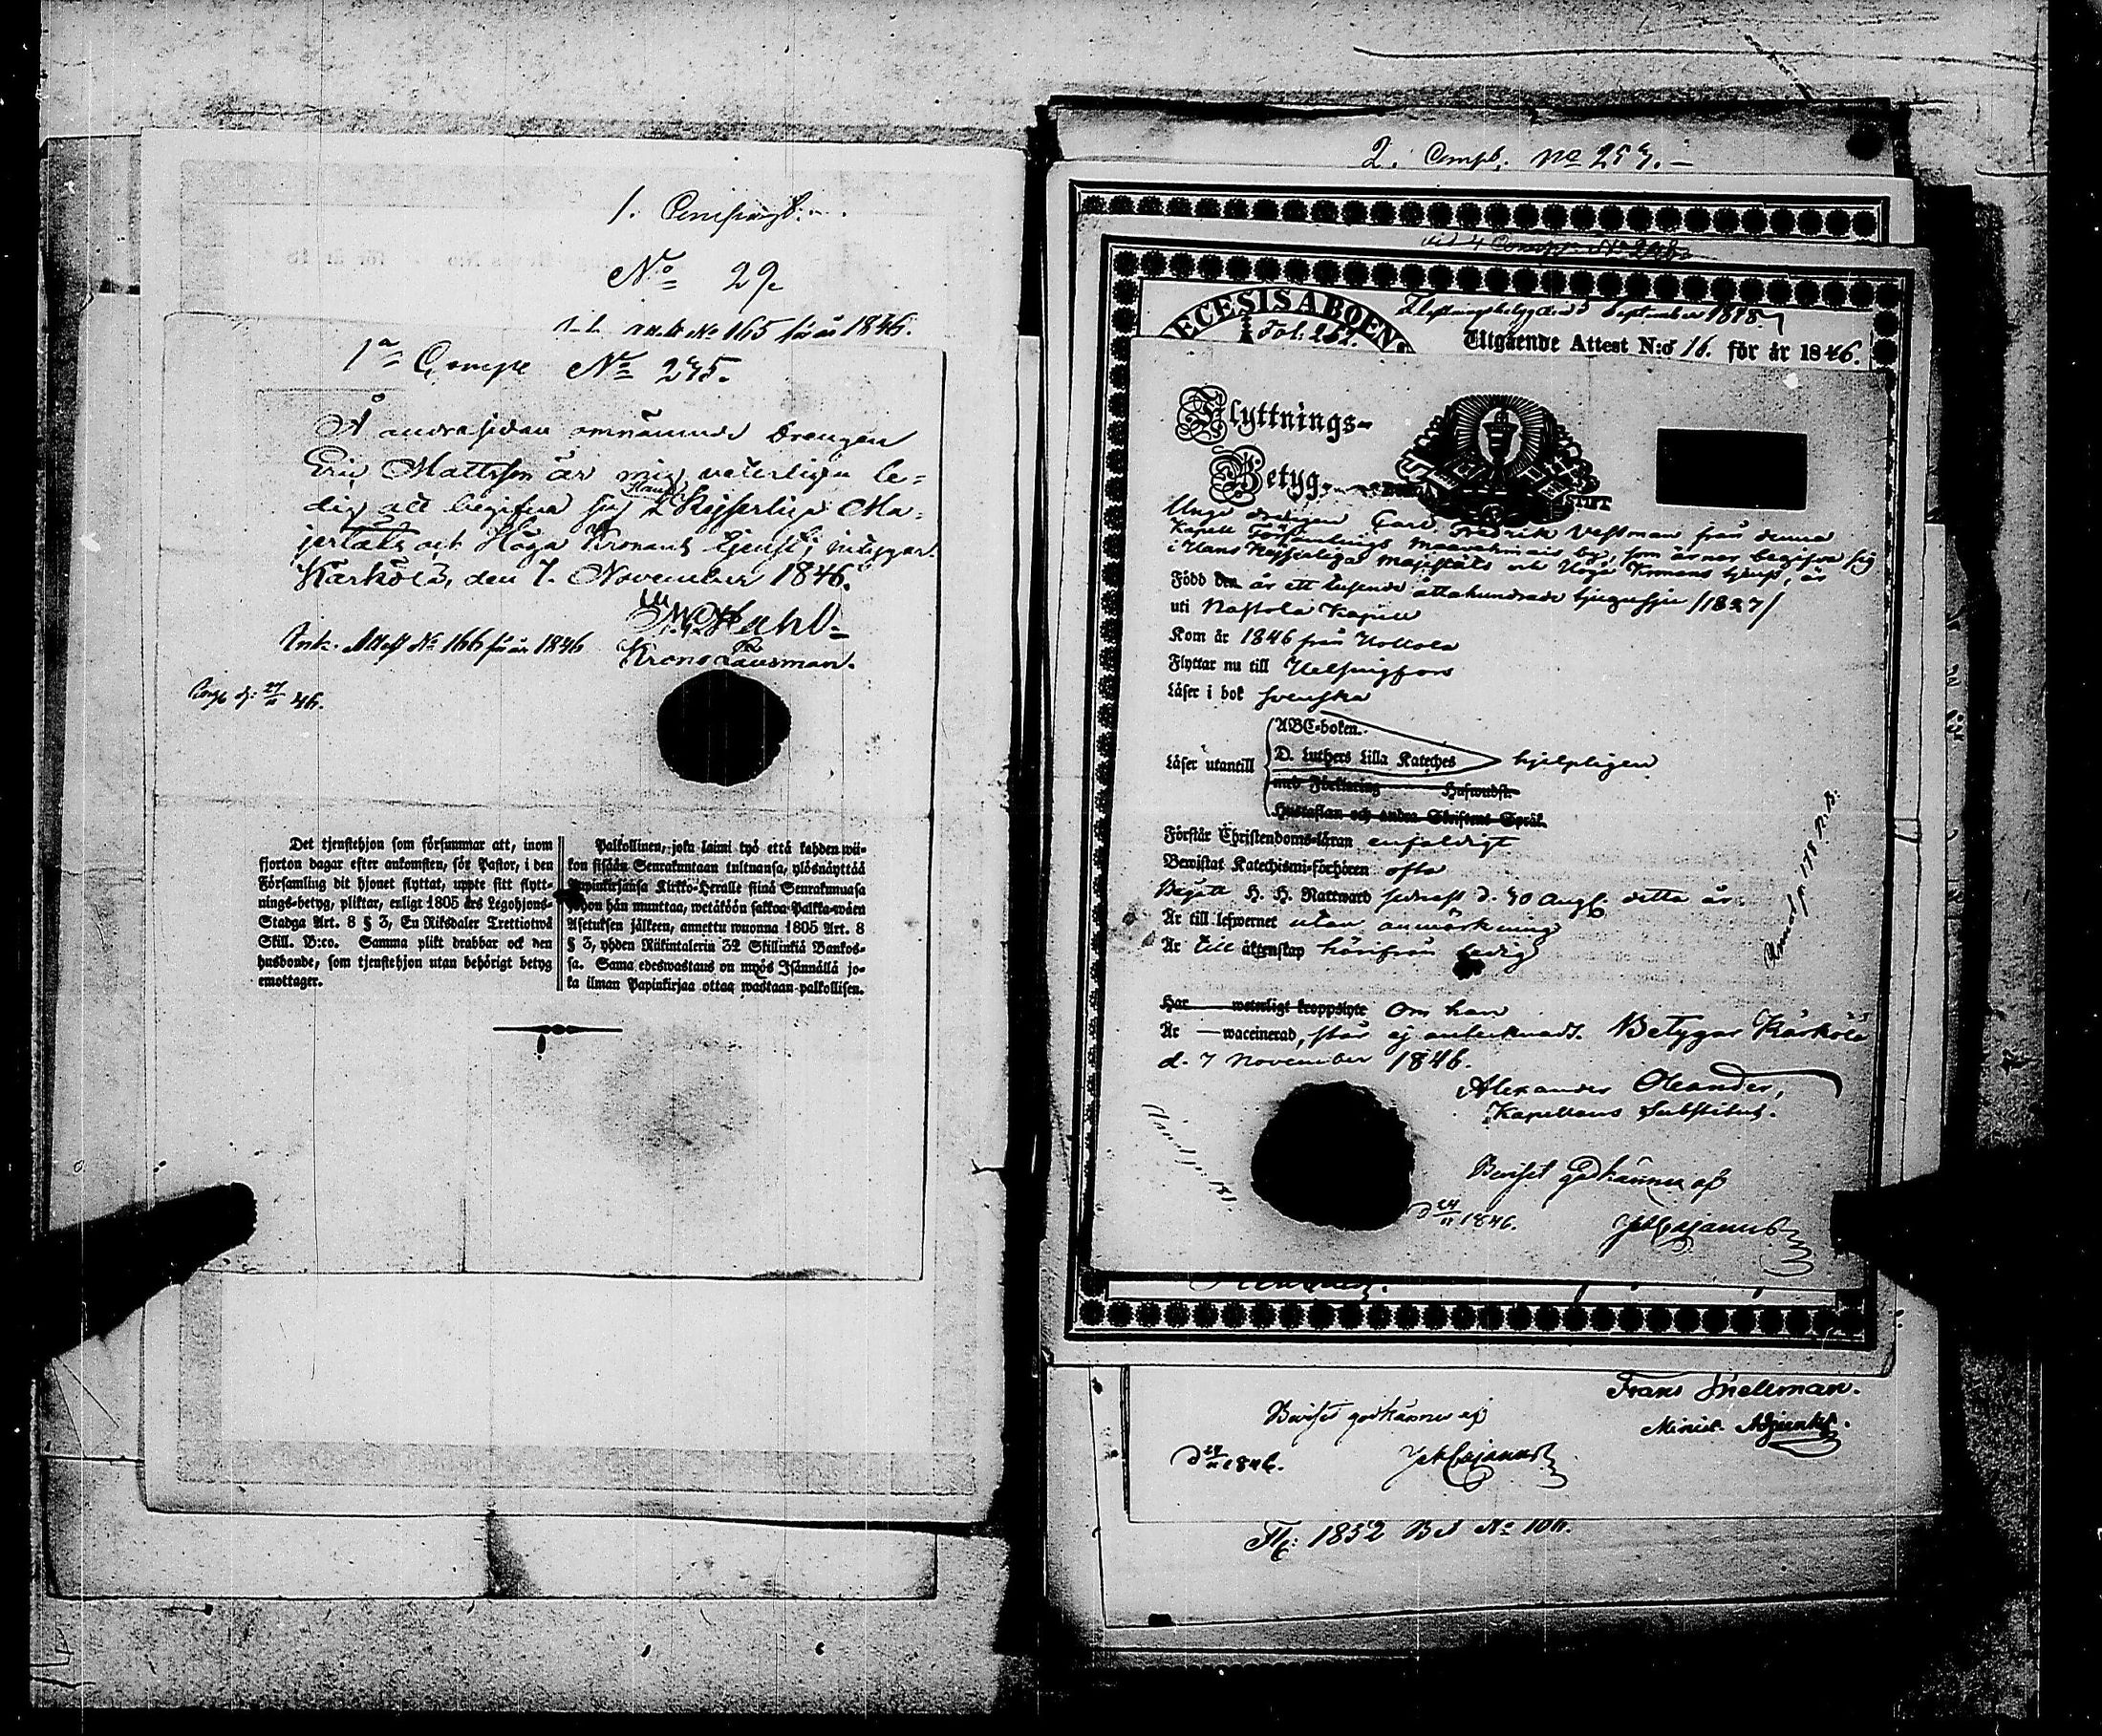 1.
No 29
No 165 för år 1846.
1a Comp No 245.
Å andra sidan omnämnde Drengen
Eric Mattsson är mig veterligen le-
dig att begifva sig i Hans Kejserliga Ma-
jestäts och Höga Kronans tjenst; intygar.
Kärkölä, den 7. November 1846.
Krono Länsman.
Ink. Attest No 166 för år 1846
Det tjenstehjon som försummar att, inom
fjorton dagar efter ankomsten, för Pastor, i den
Församling dit hjonet flyttat, uppte sitt flytt-
nings-betyg, pliktar, enligt 1805 års Legohjons-
Stadga Art. 8 § 3, En Riksdaler Trettiotwå
Skill. B:co. Samma plikt drabbar ock den
husbonde, som tjenstehjon utan behörigt betyg
emottager.
Palkollinen, joka laimi lyö että kahden wii-
kon sisään Seurakuntaan tultuansa, ylösnäyttää
Papinkirjansa Kirkko-Herralle siinä Seurakunnasa
johon hän munttaa, wetäköön sakkoa Palkka-wäen
Asetuksen jälkeen, annettu wuonna 1805 Art. 8
§ 3, yhden Riikintalerin 32 Skillinkiä Bankos-
sa. Sama edeswastaus on myös Isännällä jo-
ka ilman Papinkirjaa ottaa wastaan palkollisen.
2. Comp. No 257.
ECESIS ABOEN
Fol: 252.
September 1878.
Utgående Attest N:o 16. för år 1846.
Flyttnings-
Betyg.
STIFT
Unge drengen Carl Fredrik Vestman från denna
Kapell Församlings by, som ärnar begifva sig
i Hans Kejserliga Majestäts och Höga Kronans tjenst, är
Född den år ett tusende åttahundrade tjugusju /1827/
uti Nastola Kapell
Kom år 1846 från Hollola
Flyttar nu till Helsingfors
Läser i bok svenska
Läser utantill
ABC-boken.
D. Luthers Lilla Kateches hjelpligen
med Förklaring Hufwudst.
Hustaflan och andra Skriftens Språk.
Förstår Christendoms-läran enfaldigt
Bewistat Katechismi-förhören ofta
Begått H. H. Nattward sednast d. 30 Aug. detta år.
Är till lefwernet utan anmärkning
Är till äktenskap härifrån ledig
Har weterligt kroppslyte Om han
Är waccinerad, står ej antecknadt. Betygar Kärkölä
d. 7 November 1846.
Alexander Oleander,
Kapellans Substitut.
Beviset godkännes af
d 24/11 1846.
Frans
Minist. Adjunkt.
Beviset godkännes af
d 24/11 1846.
Fl: 1852 Bet No 100.